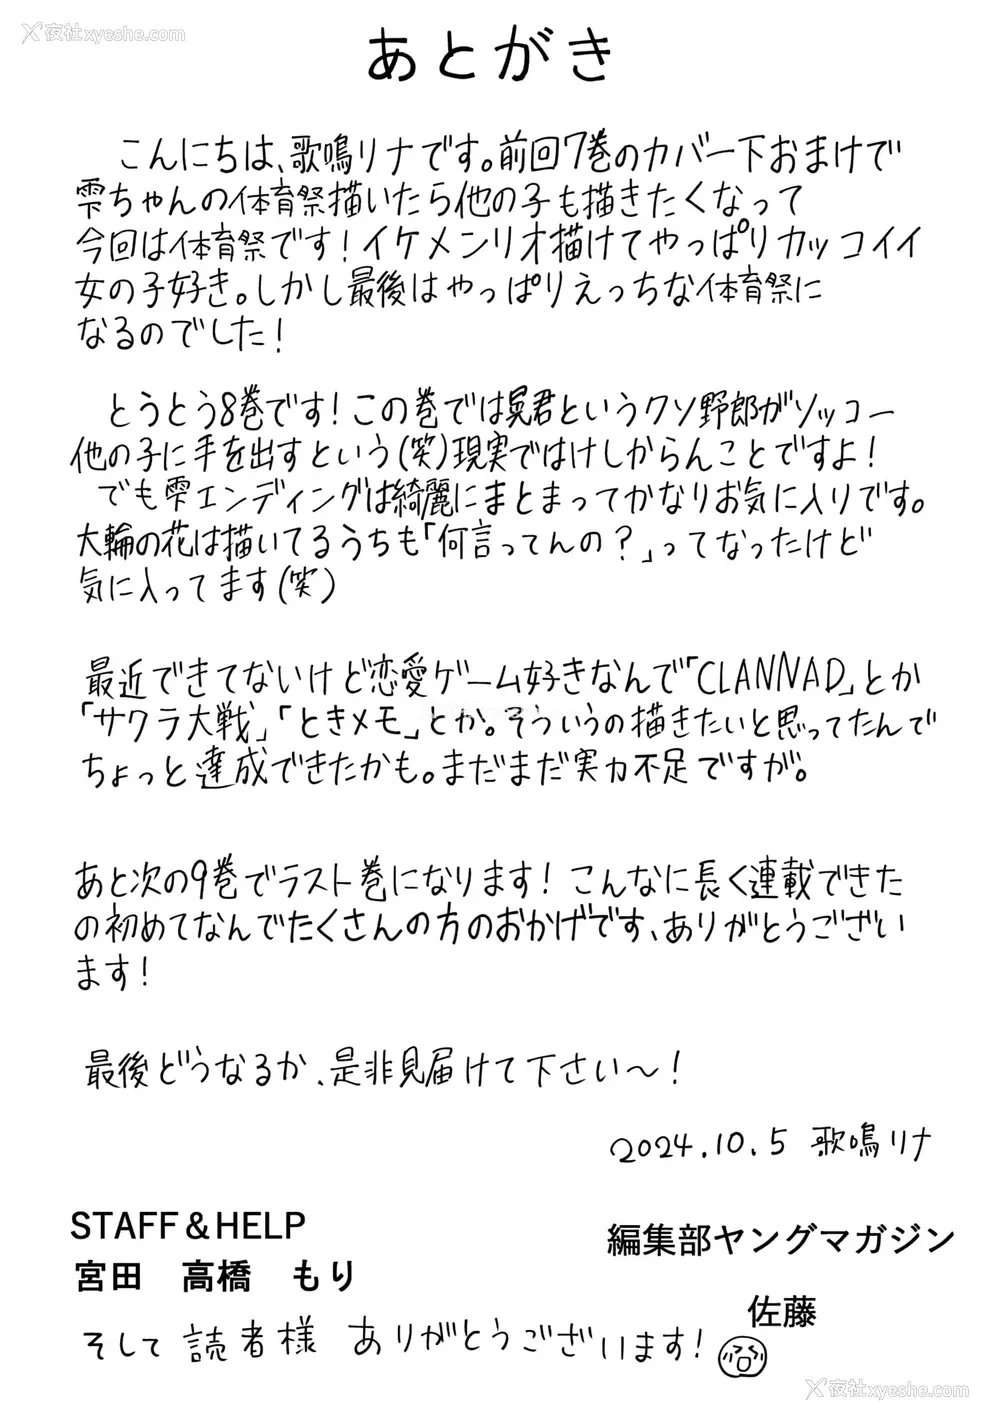 夜社xyeshe.com
あとがき
こんにちは、歌鳴リナです。前回7巻のカバー下おまけで
雫ちゃんの体育祭描いたら他の子も描きたくなって
今回は体育祭です！イケメンリオ描けてやっぱりカッコイイ
女の子好き。しかし最後はやっぱりえっちな体育祭に
なるのでした！
とうとう8巻です！この巻では晃君というクソ野郎がソッコー
他の子に手を出すという(笑)現実ではけしからんことですよ！
でも雫エンディングは綺麗にまとまってかなりお気に入りです。
大輪の花は描いてるうちも「何言ってんの？」ってなったけど
気に入ってます(笑)
最近できてないけど恋愛ゲーム好きなんで「CLANNAD」とか
「サクラ大戦」「ときメモ」とか。そういうの描きたいと思ってたんで
ちょっと達成できたかも。まだまだ実力不足ですが。
あと次の9巻でラスト巻になります！こんなに長く連載できた
の初めてなんでたくさんの方のおかげです、ありがとうござい
ます！
最後どうなるか、是非見届けて下さい〜！
2024.10.5 歌鳴リナ
STAFF＆HELP
宮田　高橋　もり
編集部ヤングマガジン
佐藤
そして読者様 ありがとうございます！
夜社xyeshe.com